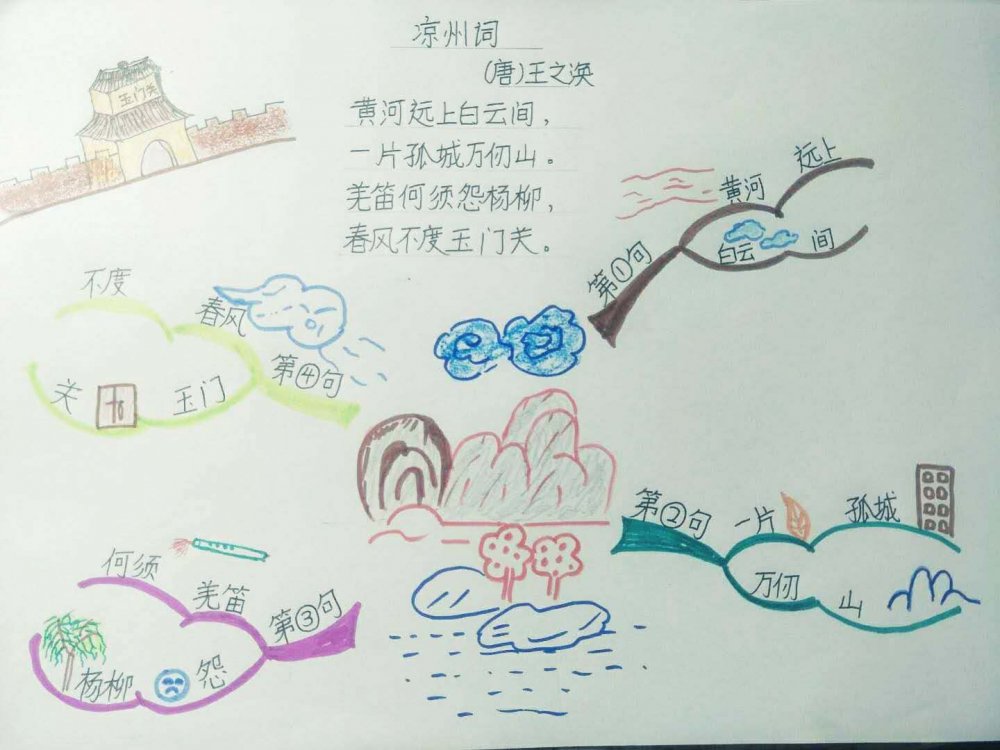 凉州词
(唐)王之涣
黄河远上白云间，
一片孤城万仞山。
羌笛何须怨杨柳，
春风不度玉门关。
玉门关
第①句
黄河
远上
白云
间
第②句
一片
孤城
万仞
山
第③句
羌笛
何须
怨
杨柳
第④句
春风
不度
玉门
关